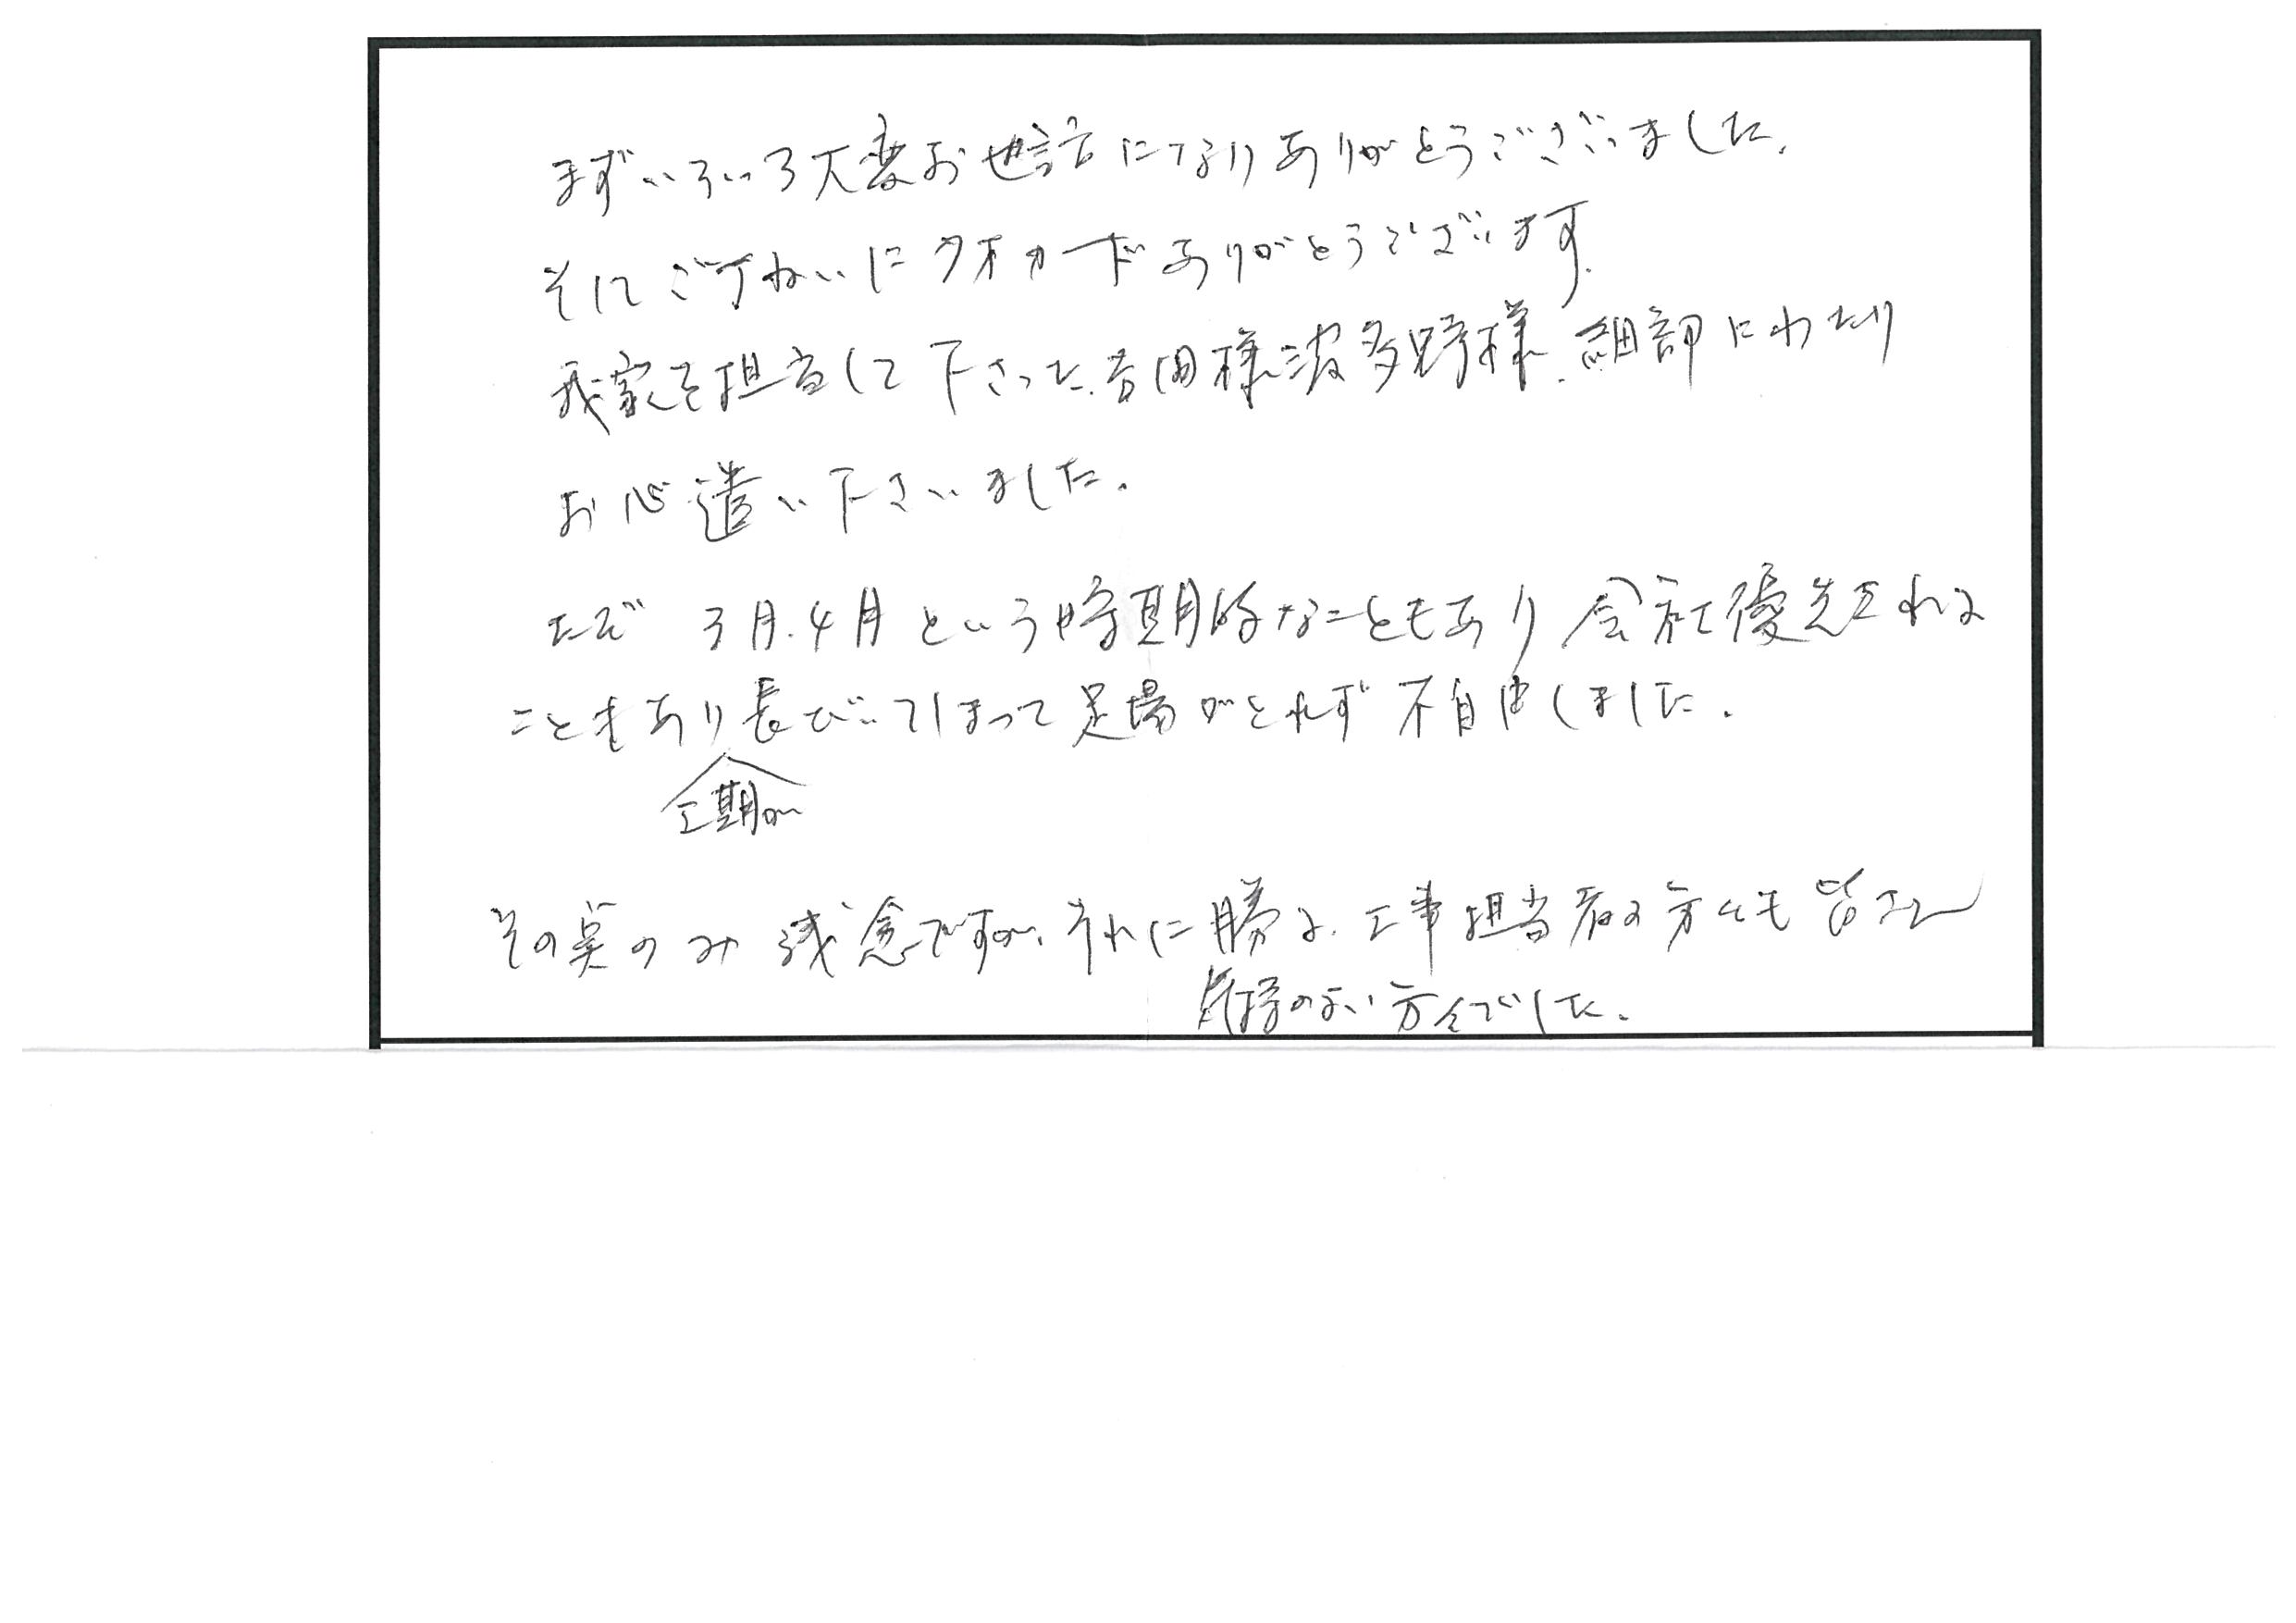 まずいろいろ大変お世話になりありがとうございました.
そしてご丁ねいにクオカードありがとうございます.
我家を担当して下さった.吉田様波多野様.細部にわたり
お心遣い下さいました.
ただ 3月.4月という時期的なこともあり 会社優先される
こともあり長びいてしまって足場がとれず不自由しました.
工期が
その点のみ 残念ですが、それに勝る.工事担当者の方々も皆さん
気持のよい方々でした.